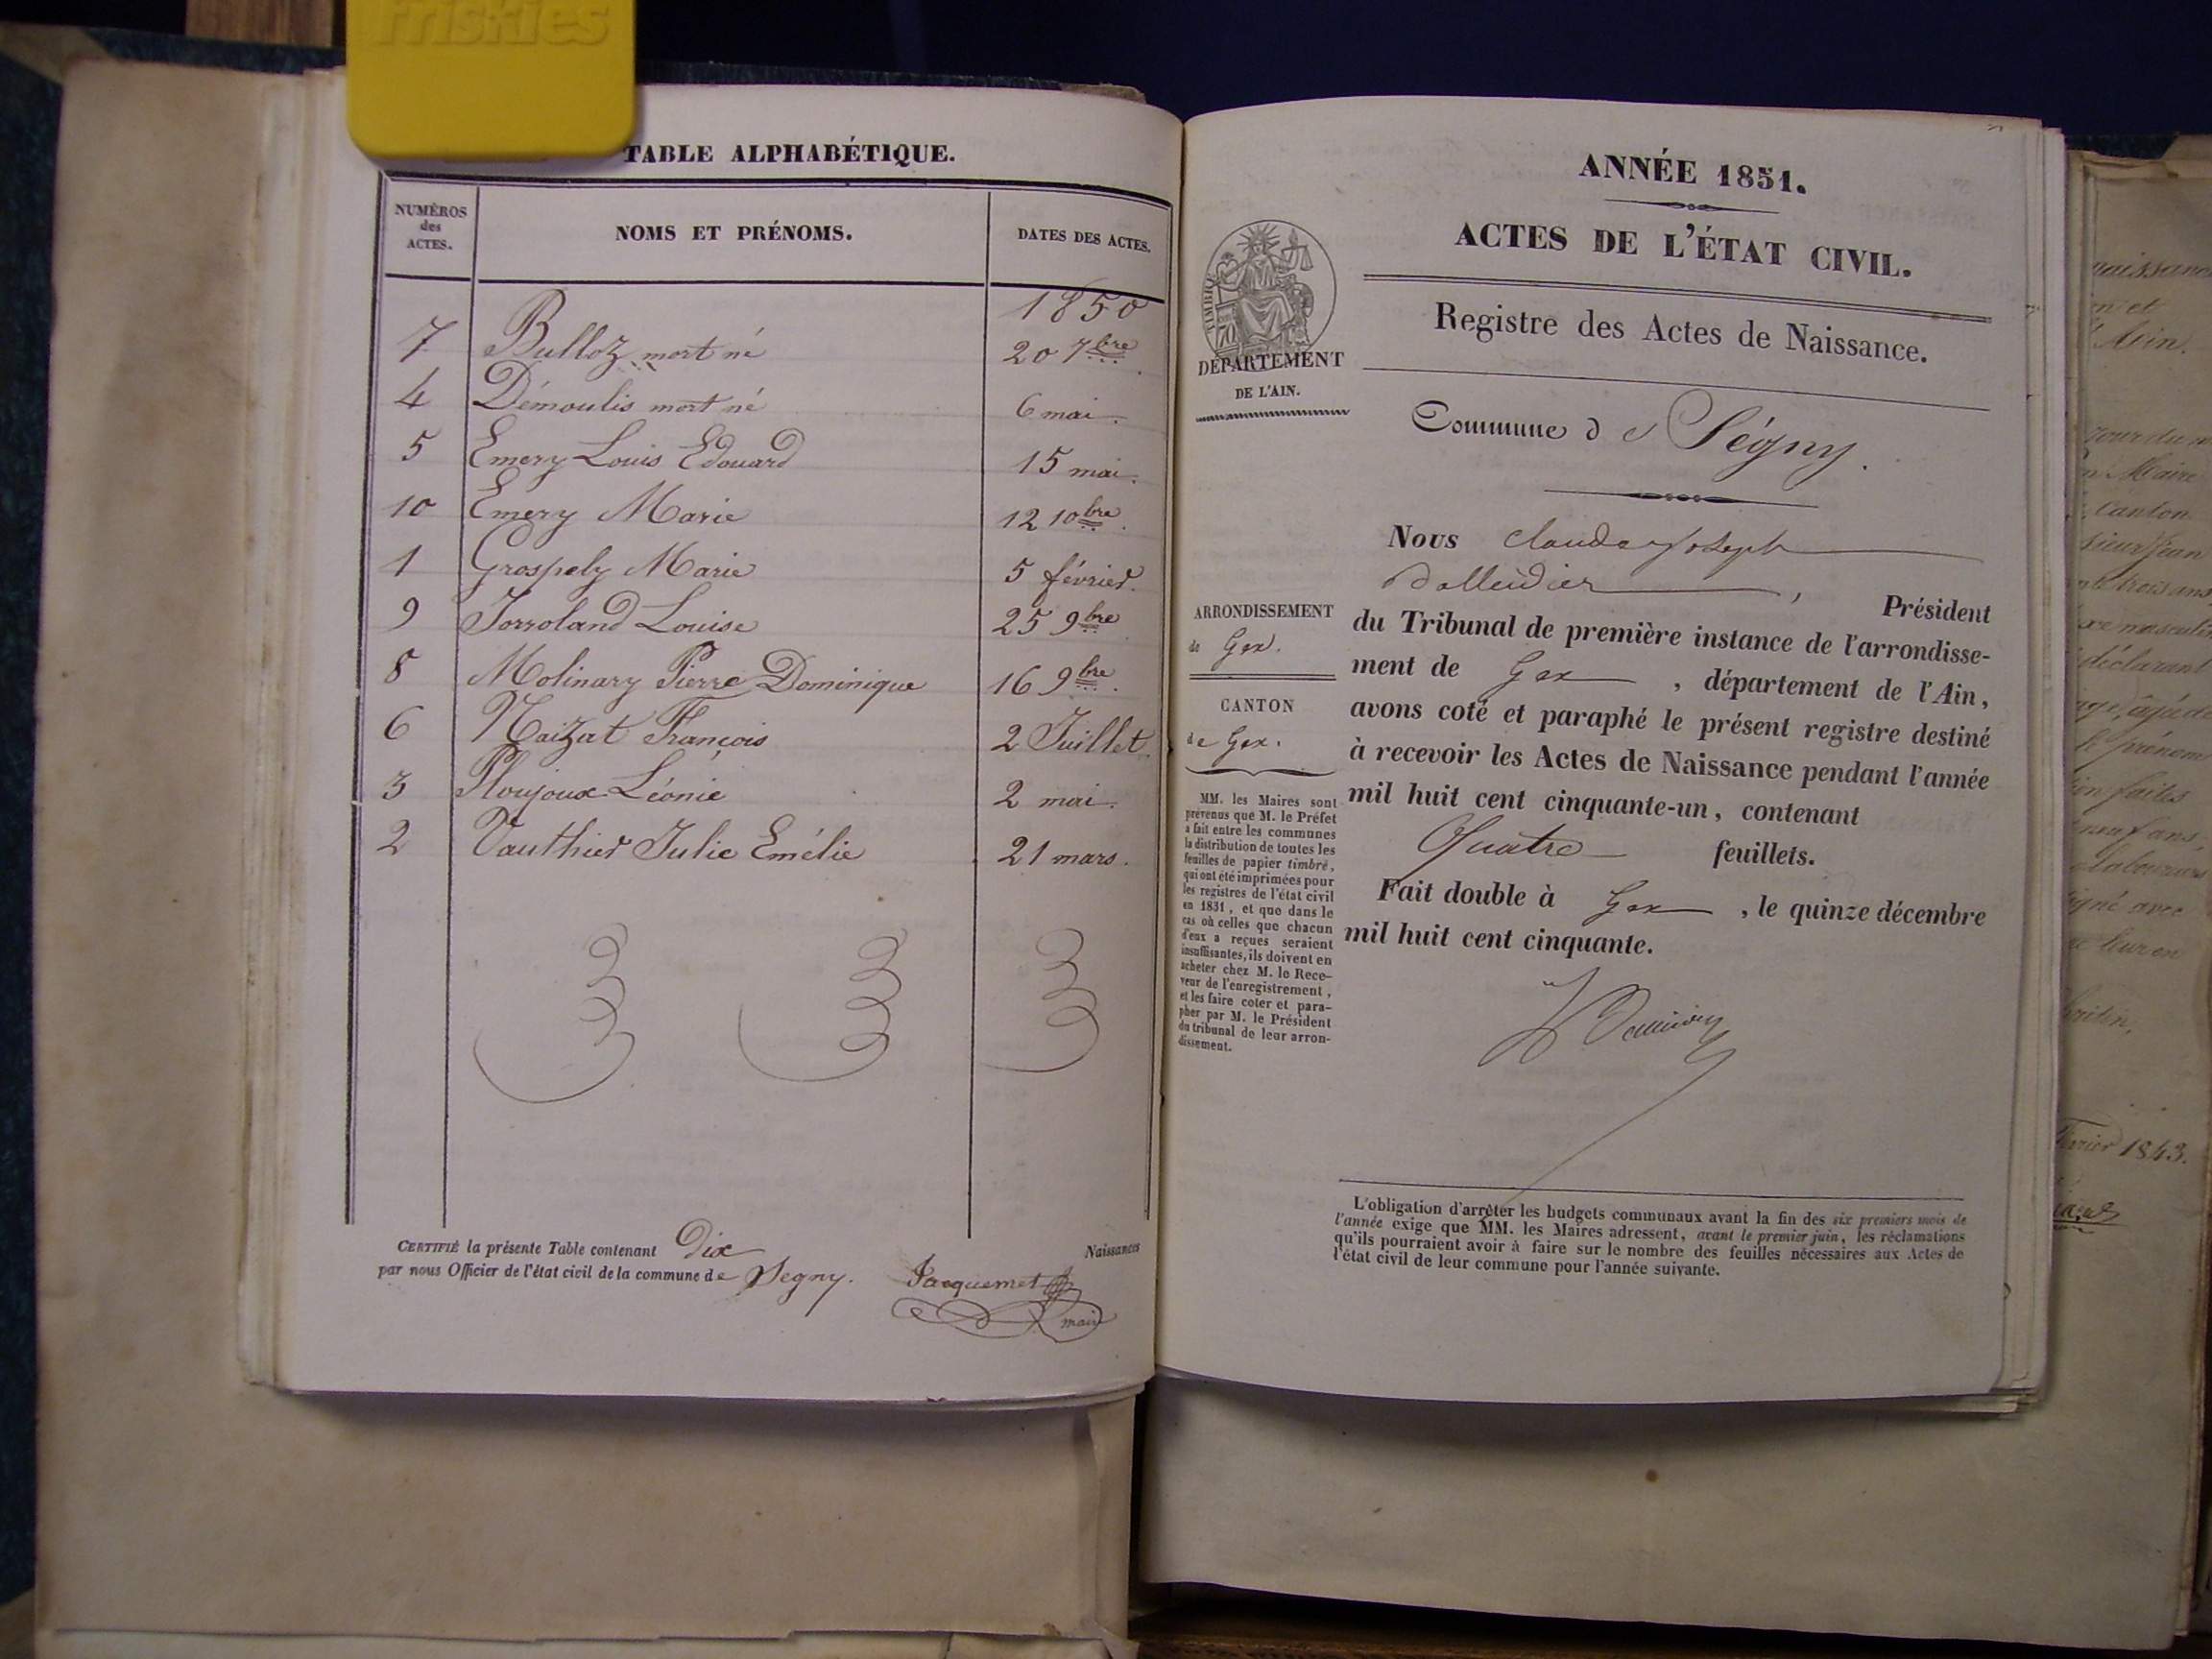 Friskies
TABLE ALPHABÉTIQUE.
NUMÉROS des ACTES. NOMS ET PRÉNOMS. DATES DES ACTES.
1850
7 Bulloz mort né 20 7bre
4 Démoulis mort né 6 mai.
5 Emery Louis Edouard 15 mai.
10 Emery Marie 12 10bre.
1 Grospely Marie 5 février.
9 Jorroland Louise 25 9bre
8 Molinary Pierre Dominique 16 9bre.
6 Naizat François 2 Juillet.
3 Ploujoux Léonie 2 mai.
2 Vauthier Julie Emélie 21 mars.
CERTIFIÉ la présente Table contenant Dix Naissances
par nous Officier de l'état civil de la commune de Segny. Jacquemet
maire
ANNÉE 1851.
ACTES DE L'ÉTAT CIVIL.
Registre des Actes de Naissance.
TIMBRE
70
DÉPARTEMENT
DE L'AIN.
Commune de Ségny.
Nous Claude Joseph
, Président
du Tribunal de première instance de l'arrondisse-
ment de Gex , département de l'Ain,
avons coté et paraphé le présent registre destiné
à recevoir les Actes de Naissance pendant l'année
mil huit cent cinquante-un, contenant
Quatre feuillets.
Fait double à Gex , le quinze décembre
mil huit cent cinquante.
ARRONDISSEMENT
de Gex.
CANTON
de Gex.
MM. les Maires sont
prévenus que M. le Préfet
a fait entre les communes
la distribution de toutes les
feuilles de papier timbré,
qui ont été imprimées pour
les registres de l'état civil
en 1831, et que dans le
cas où celles que chacun
d'eux a reçues seraient
insuffisantes, ils doivent en
acheter chez M. le Rece-
veur de l'enregistrement,
et les faire coter et para-
pher par M. le Président
du tribunal de leur arron-
dissement.
L'obligation d'arrêter les budgets communaux avant la fin des six premiers mois de
l'année exige que MM. les Maires adressent, avant le premier juin, les réclamations
qu'ils pourraient avoir à faire sur le nombre des feuilles nécessaires aux Actes de
l'état civil de leur commune pour l'année suivante.
et
Ain.
Maire
Canton
Jean
trois ans
déclarant
prénom
faites
ans,
avec
1843.